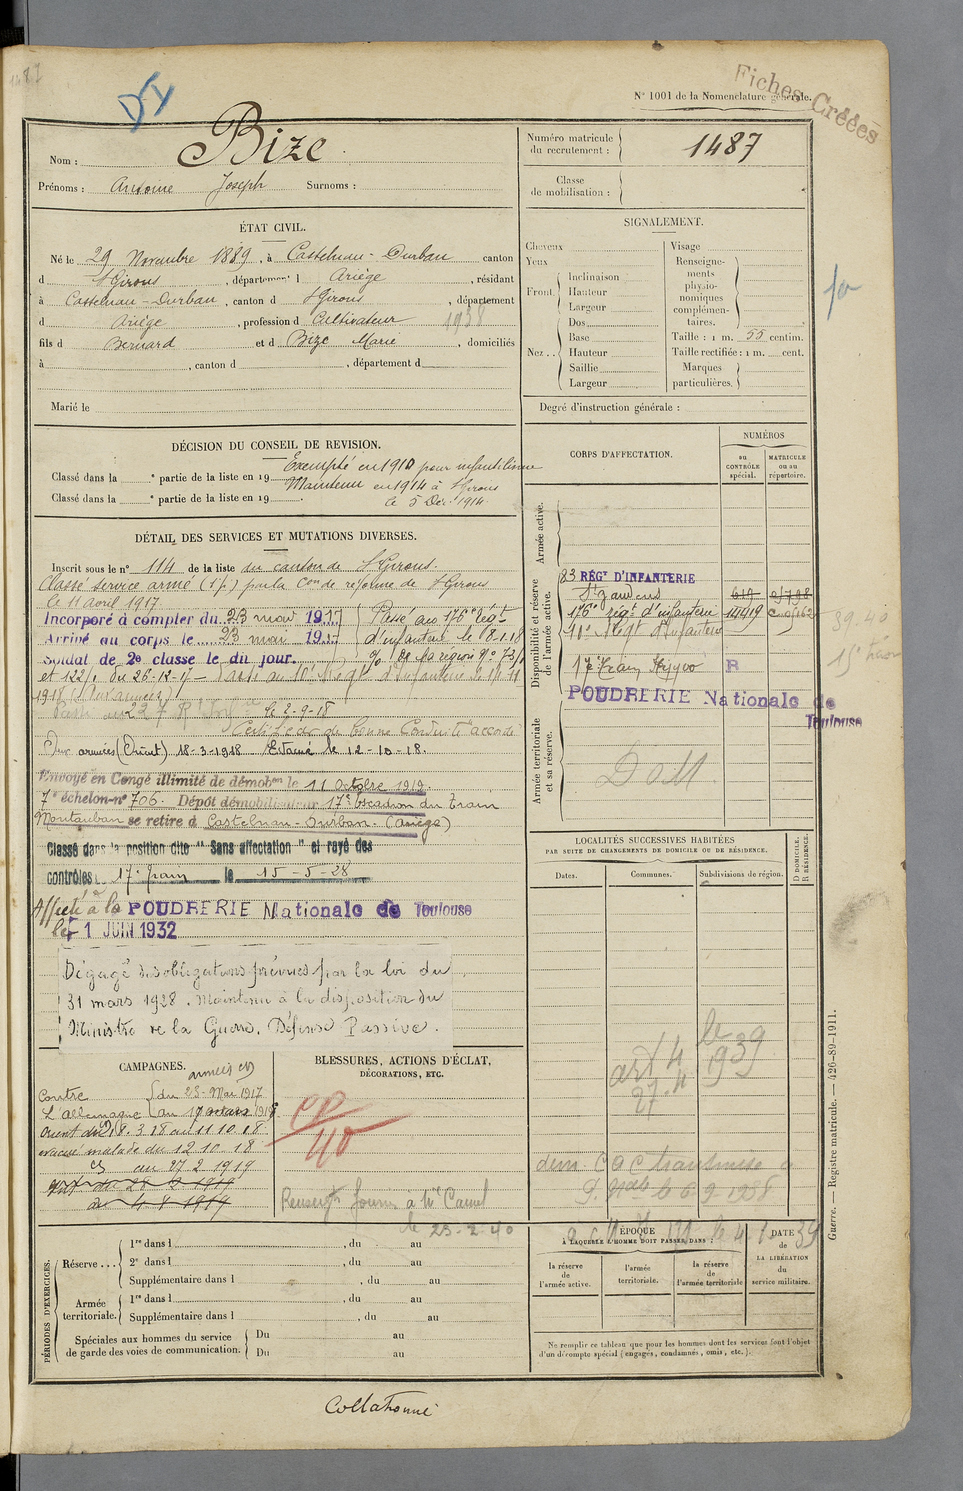 Fiches Créées
N° 1001 de la Nomenclature générale.
Nom : Bize
Prénoms : Antoine Joseph Surnoms :
Numéro matricule du recrutement : 1487
Classe de mobilisation :
ÉTAT CIVIL.
Né le 29 Novembre 1889, à Castelnau-Durban canton
d St Girons, département d Ariège, résidant
à Castelnau-Durban, canton d St Girons, département
d Ariège, profession d Cultivateur 1938
fils d Bernard et d Bize Marie, domiciliés
à , canton d , département d
Marié le
SIGNALEMENT.
Cheveux
Yeux
Front. Inclinaison
Hauteur
Largeur
Nez .. Dos
Base
Hauteur
Saillie
Largeur
Visage
Renseignements physionomiques complémentaires.
Taille : 1 m. 55 centim.
Taille rectifiée : 1 m. cent.
Marques particulières.
Degré d'instruction générale :
DÉCISION DU CONSEIL DE REVISION.
Exempté en 1910 pour infantilisme
Classé dans la e partie de la liste en 19
Maintenu en 1914 à St Girons
Classé dans la e partie de la liste en 19
le 5 Déc. 1914
DÉTAIL DES SERVICES ET MUTATIONS DIVERSES.
Inscrit sous le n° 114 de la liste du canton de St Girons.
Classé service armé par la Con de réforme de St Girons
le 11 avril 1917.
Incorporé à compter du 23 mai 1917
Arrivé au corps le 23 mai 1917
Soldat de 2e classe le dit jour.
Passé au 176e régt
d'infanterie le 8.1.18
1918 (Aux armées)
le 2-9-18
Certificat de bonne Conduite accordé
Aux armées (Orient) 18-3-1918 Evacué le 12-10-18.
Envoyé en Congé illimité de démobon le 11 Octobre 1919
7e échelon n° 706. Dépôt démobilisateur 17e Escadron du Train
Montauban se retire à Castelnau-Durban. (Ariège)
Classé dans la position dite "Sans affectation" et rayé des
contrôles 17e train le 15-5-28
Affecté à la POUDRERIE Nationale de Toulouse
le 1 JUIN 1932
Dégagé des obligations prévues par la loi du
31 mars 1928. Maintenu à la disposition du
Ministre de la Guerre. Défense Passive.
CORPS D'AFFECTATION.
NUMÉROS
au CONTRÔLE spécial.
MATRICULE ou au répertoire.
Armée active.
Disponibilité et réserve de l'armée active.
83 RÉGt D'INFANTERIE
St Gaudens
176e régt d'infanterie 14919
17e Train
R
POUDRERIE Nationale de
Toulouse
Armée territoriale et sa réserve.
DoM
LOCALITÉS SUCCESSIVES HABITÉES
PAR SUITE DE CHANGEMENTS DE DOMICILE OU DE RÉSIDENCE.
Dates.
Communes.
Subdivisions de région.
D DOMICILE.
R RÉSIDENCE.
CAMPAGNES.
Contre
L'Allemagne
du 23-Mai 1917
Orient du 18.3.18 au 11.10.18
évacué malade du 12.10.18
au 27 2 1919
BLESSURES, ACTIONS D'ÉCLAT,
DÉCORATIONS, ETC.
le 23-2-40
PÉRIODES D'EXERCICES.
Réserve ... 1re dans l , du au
2e dans l , du au
Supplémentaire dans l , du au
Armée territoriale. 1re dans l , du au
Supplémentaire dans l , du au
Spéciales aux hommes du service de garde des voies de communication. Du au
Du au
ÉPOQUE
À LAQUELLE L'HOMME DOIT PASSER DANS :
la réserve de l'armée active.
l'armée territoriale.
la réserve de l'armée territoriale
DATE de LA LIBÉRATION du service militaire.
Ne remplir ce tableau que pour les hommes dont les services font l'objet
d'un décompte spécial (engagés, condamnés, omis, etc.).
Guerre. — Registre matricule. — 426-89-1911.
Collationné